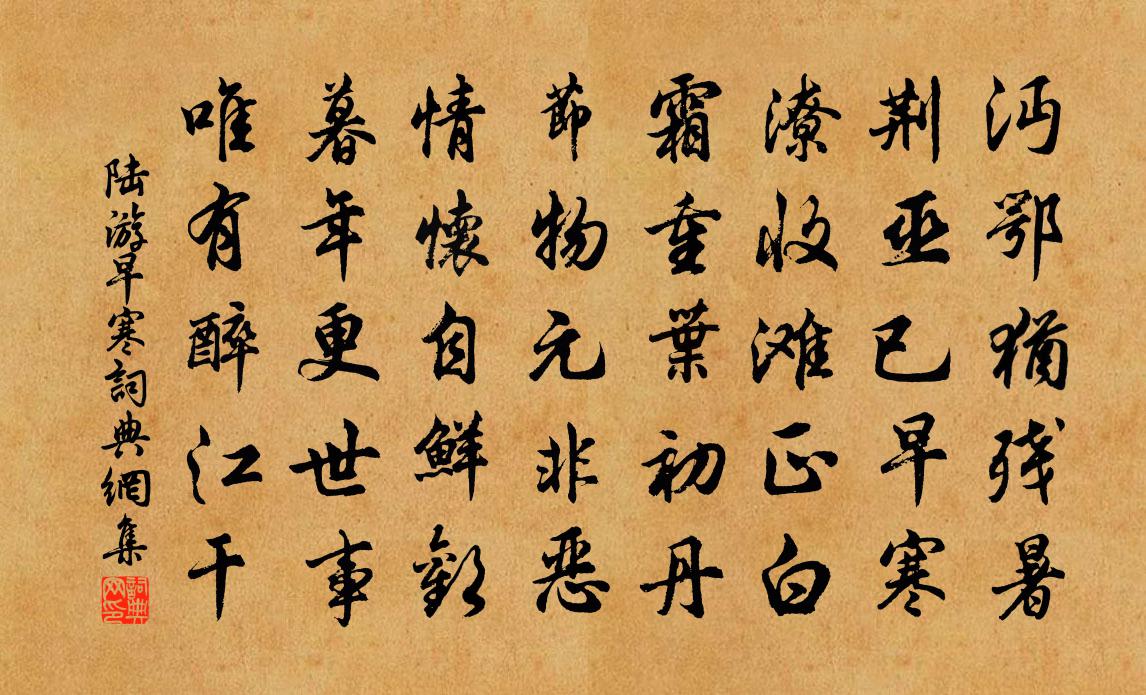 沔鄂猶残暑
荆巫已早寒
潦收滩正白
霜重葉初丹
節物元非惡
情懷自鮮歡
暮年更世事
唯有醉江干
陆游早寒詞典網集
詞典网印